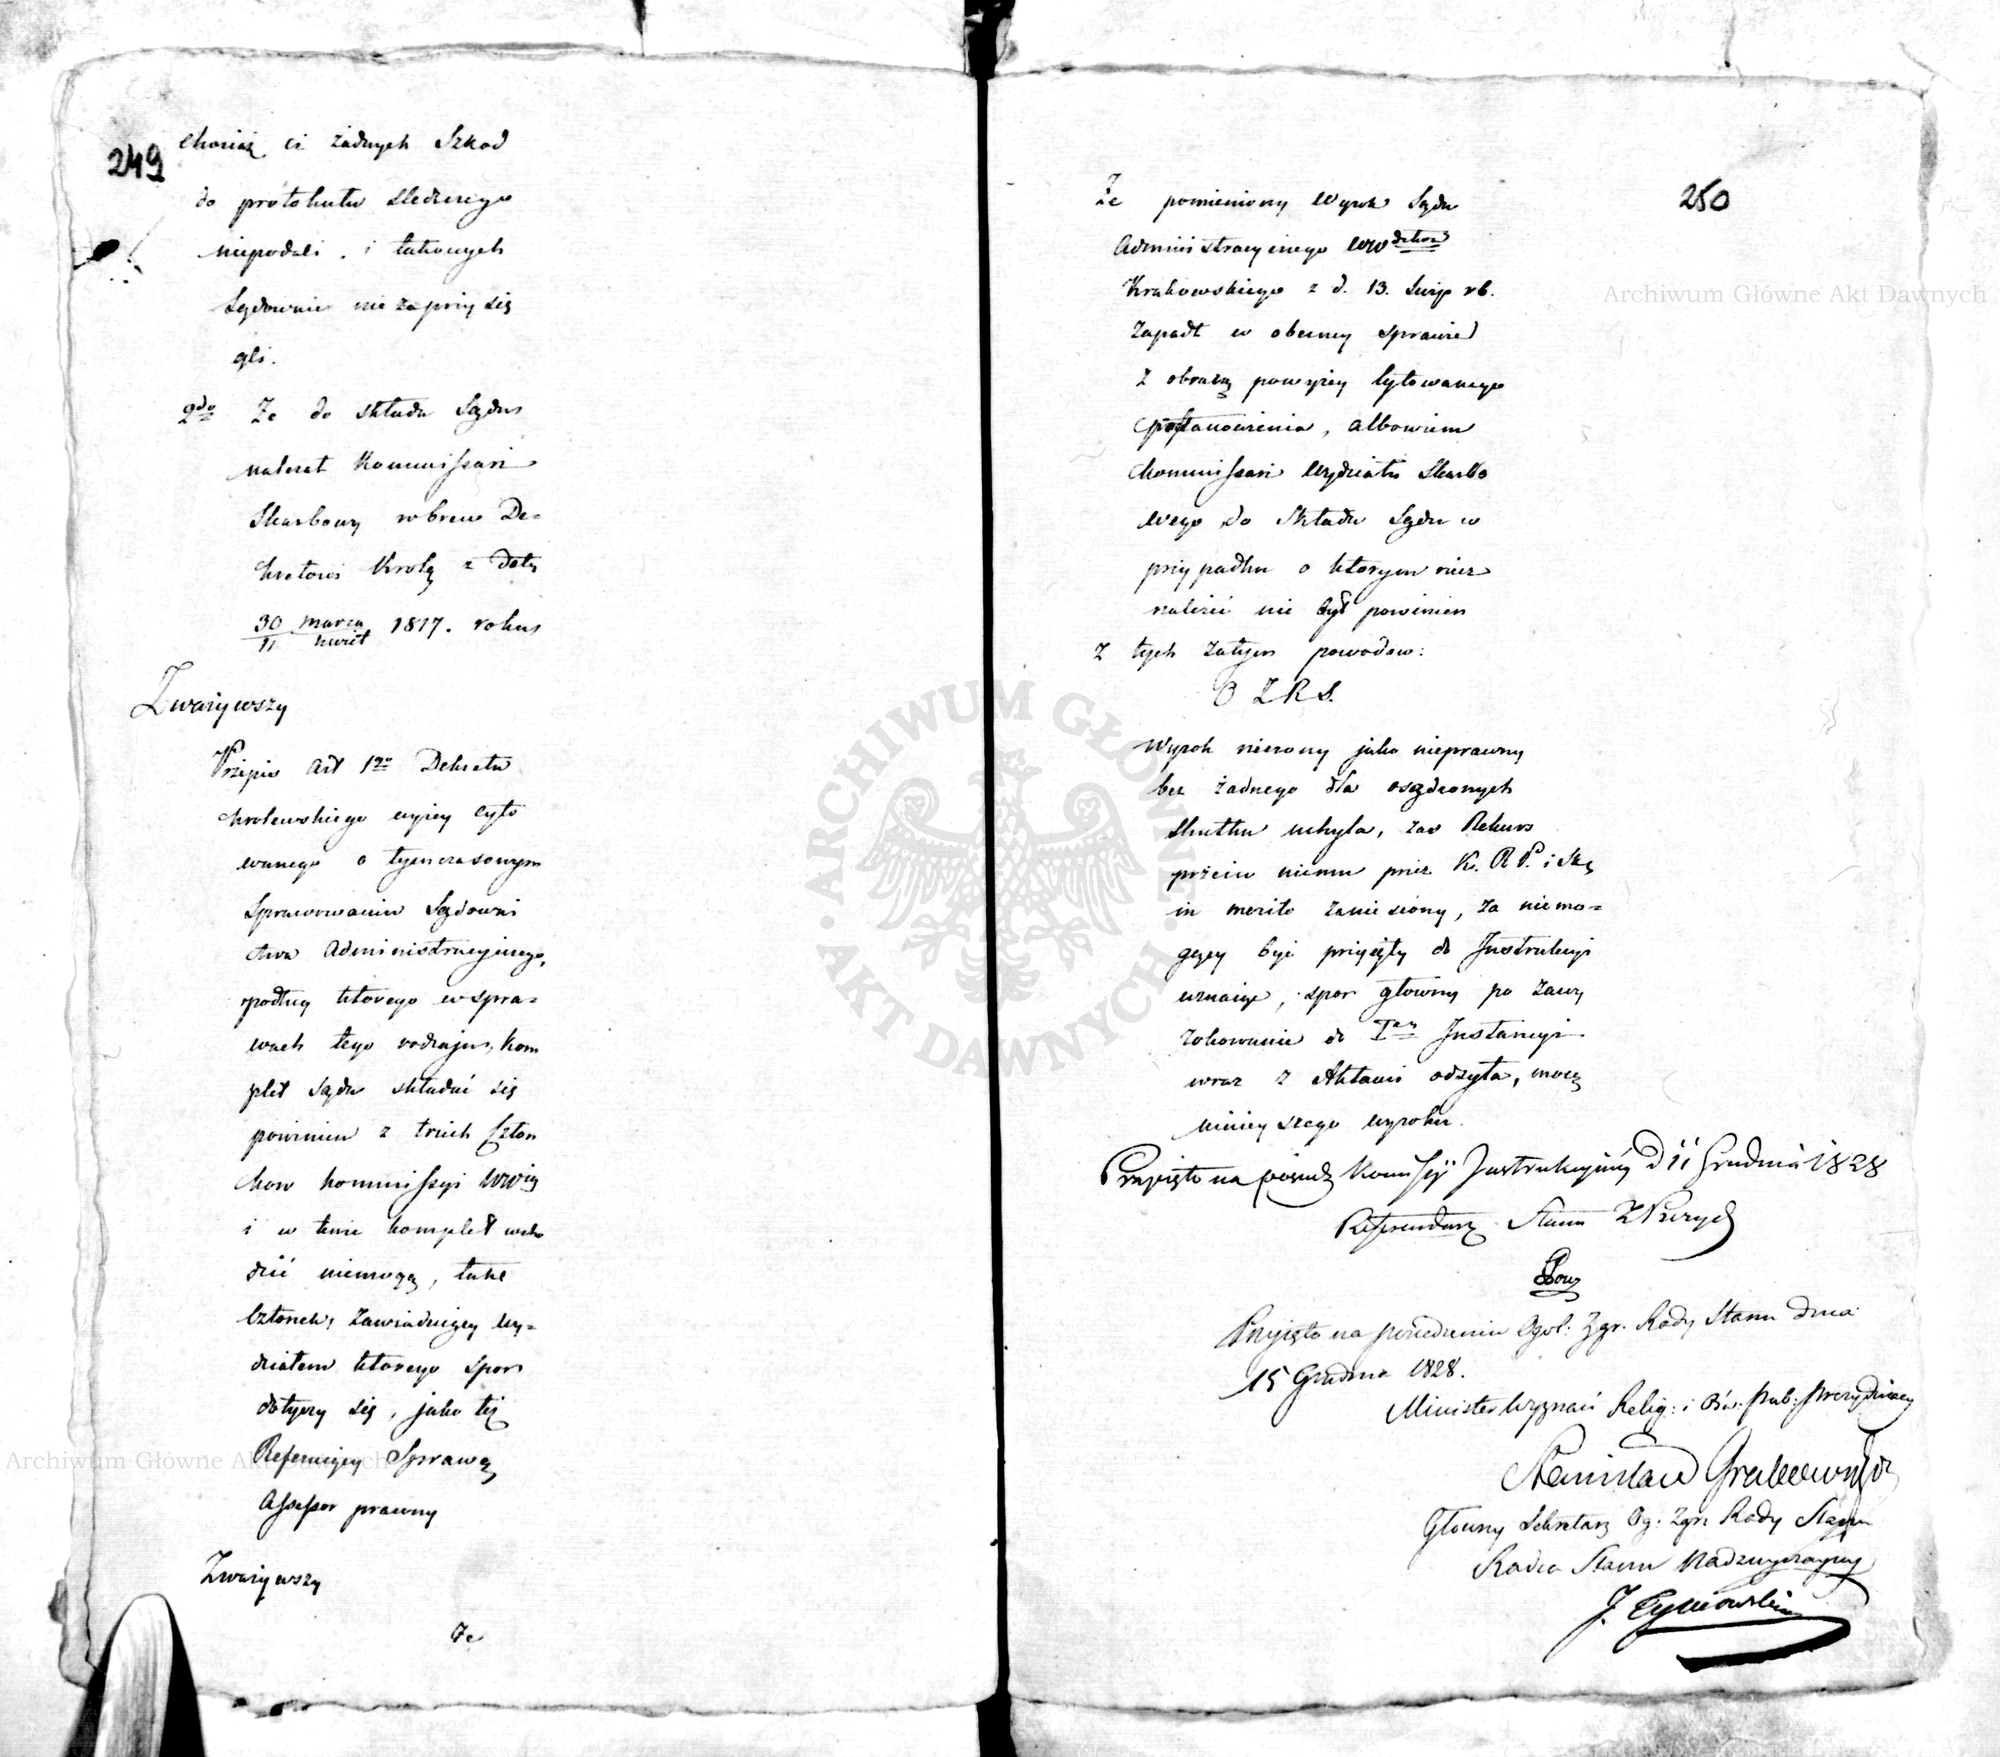 249
Chociaż ci żadnych Szkod
do protokułu śledczego
niepodali, i takowych
Sądownie nie zaprzysię
gli.
2do Że do składu Sądu
należał Kommissarz
Skarbowy wbrew De-
kretowi Króla z daty
30 marca 1817. roku
11 kwiet
Zważywszy
Przepis Art 1go Dekretu
Krolewskiego wyżey cyto
wanego o tymczasowym
Sprawowaniu Sądowni
ctwa Administracyinego,
podług ktorego w spra-
wach tego rodzaju, kom
plet Sądu składać się
powinien z trzech Człon
kow kommissyi Wwey
i w tenże komplet wcho
dzić niemogą, takze
Członek, Zawiaduiący wy-
działem ktorego spor
dotyczy się, jako też
Referuiący Sprawę
Assessor prawny
Zważywszy
Że
250
Że pomieniony Wyrok Sądu
Administracyinego Wwdztwa
Krakowskiego z d. 13. Sierp rb.
Zapadł w obecney sprawie
z obrazą powyżey Cytowanego
postanowienia, albowiem
Kommissarz Wydziału Skarbo
wego do Składu Sądu w
przypadku o ktorym rzecz
należeć nie był powinien
Z tych zatym powodow:
O Z R S.
Wyrok rzeczony jako nieprawny
bez żadnego dla osądzonych
skutku uchyla, zaś Rekurs
przeciw niemu przez K. R P. i Skę
in merito zaniesiony, za niemo-
gący być przyięty do Instrukcyi
uznaiąc, spor głowny po zawy
rokowanie do Iey Instancyi
wraz z Aktami odsyła, mocą
ninieyszego wyroku.
Przyięto na posiedz Komissyi Instrukcyiney D 11 Grudnia 1828
Referendarz Stanu
Przyięto na posiedzeniu Ogól: Zgr. Rady Stanu dnia
15 Grudnia 1828.
Minister Wyznań Relig: i Ośw. Pub: prezyduiący
Stanisław Grabowski
Głowny Sekretarz Og. Zgr. Rady Stanu
Radca Stanu Nadzwyczayny
J. Tymowski
Archiwum Główne Akt Dawnych
Archiwum Główne Akt Dawnych
ARCHIWUM GŁÓWNE AKT DAWNYCH